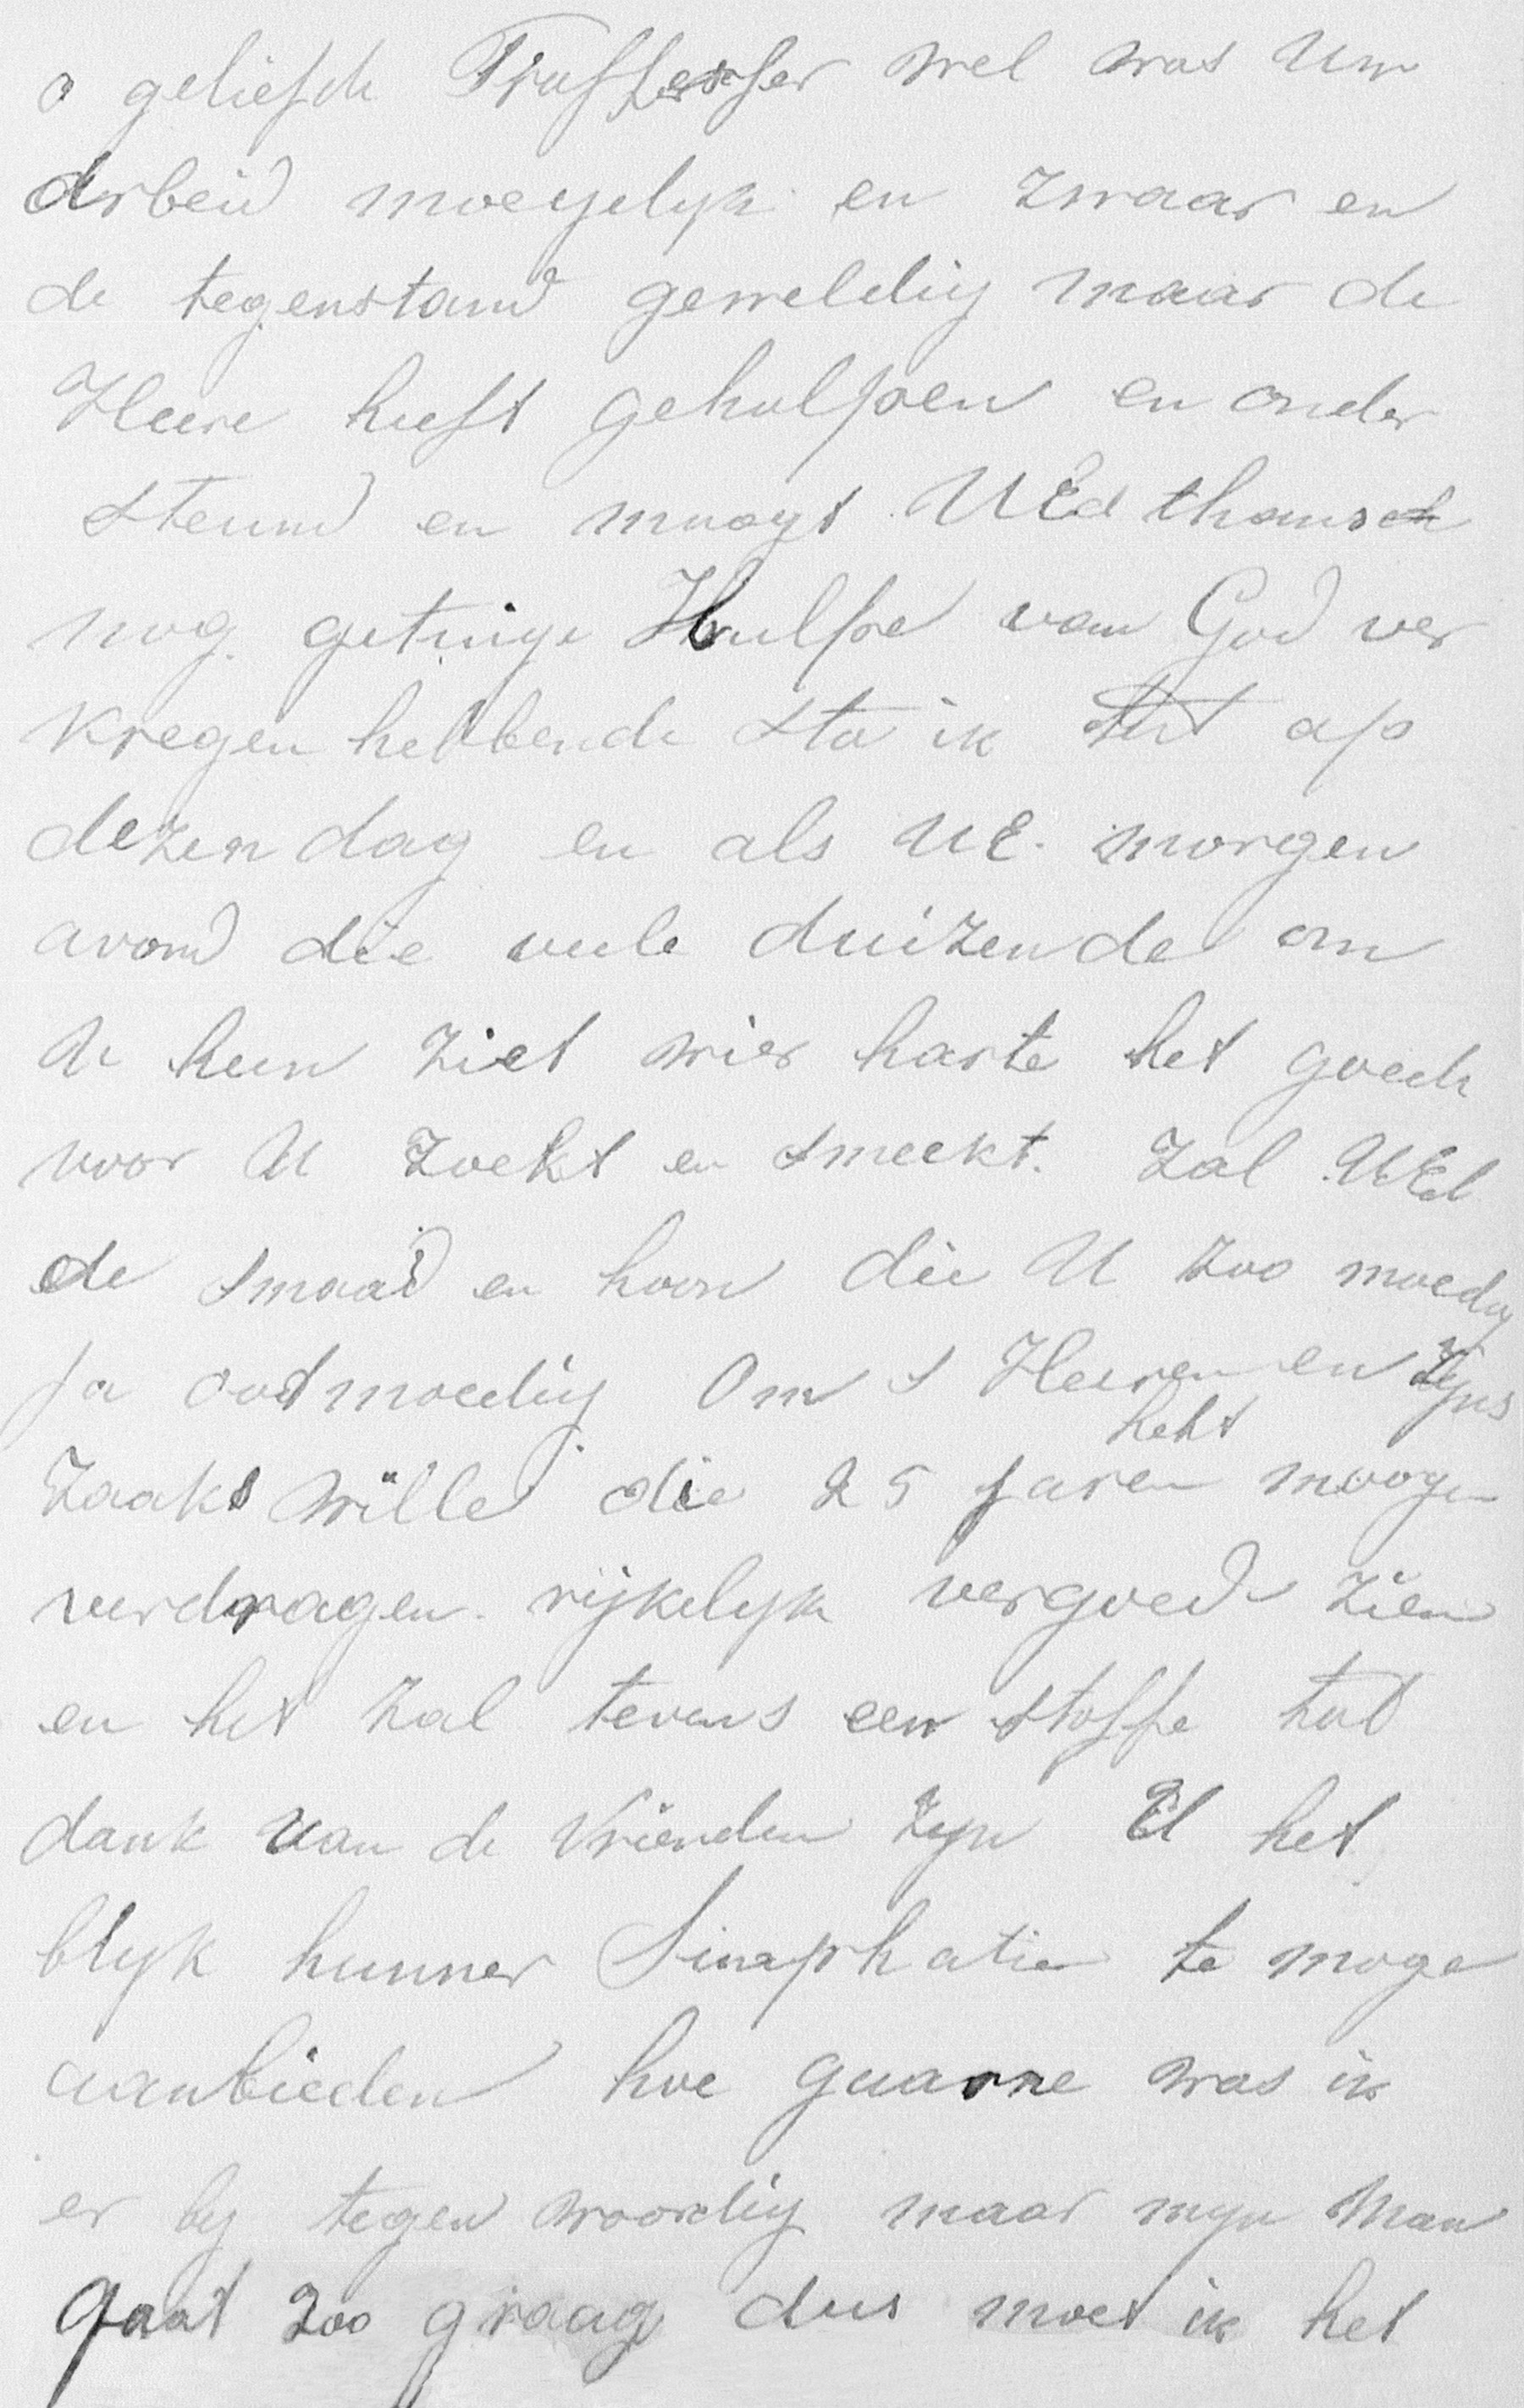 o geliefde Proffesser wel was Uw
Arbeid moeyelyk en zwaar en
de tegenstand geweldig maar de
Heere heeft geholpen en onder
steund en moogt UEd thans
nog getuige Hulpe van God ver
kregen hebbende sta ik tot op
dezen dag en als UE. morgen
avond die veele duizende om
U heen ziet wier harte het goede
voor U zoekt en smeekt. Zal UEd
de smaad en hoon die U zoo moedig
ja ootmoedig Om s Heeren en Zyns
hebt
Zaaks wille die 25 jaren moogen
verdragen rijkelyk vergoed zien
en het zal tevens een stoffe tot
dank van de Vrienden zyn U het
blyk hunner Simphatie te moge
aanbieden hoe gaarne was ik
er by tegen woordig maar myn Man
gaat zoo graag dus moet ik het